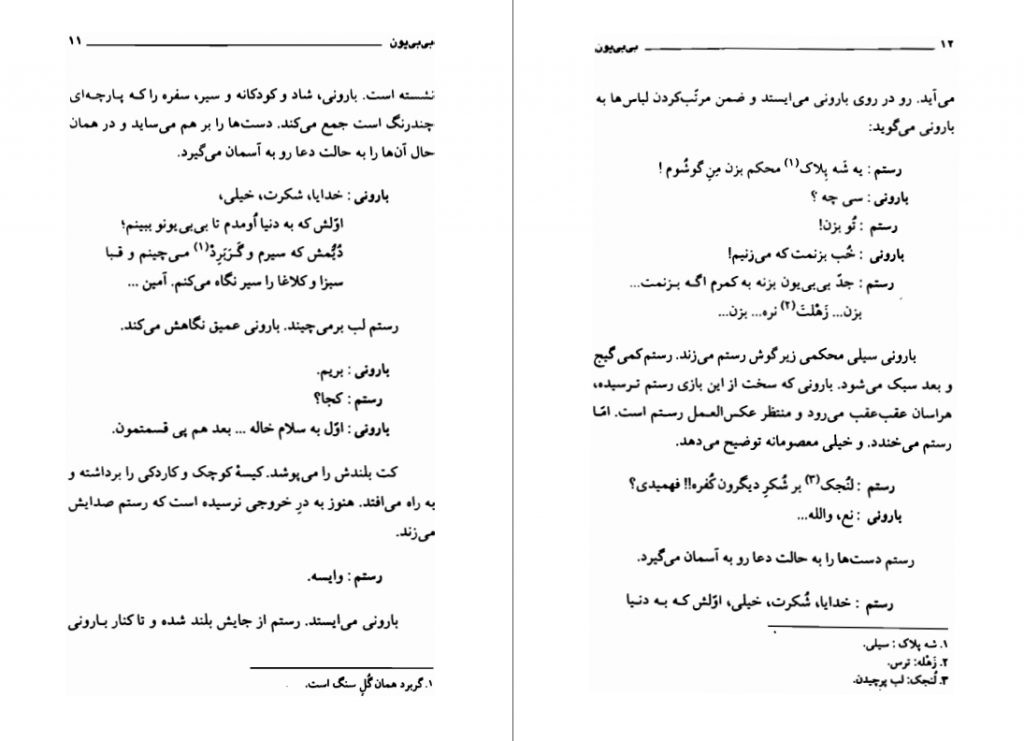 بی‌بی‌یون ۱۱
نشسته است. بارونی، شاد و کودکانه و سیر، سفره را که پارچه‌ای
چندرنگ است جمع می‌کند. دست‌ها را بر هم می‌ساید و در همان
حال آن‌ها را به حالت دعا رو به آسمان می‌گیرد.
بارونی : خدایا، شکرت، خیلی،
اوّلش که به دنیا اُومدم تا بی‌بی‌یونو ببینم؛
دُیُّمش که سیرم و گَربَرِدْ(۱) می‌چینم و قبا
سبزا و کلاغا را سیر نگاه می‌کنم. آمین ...
رستم لب برمی‌چیند. بارونی عمیق نگاهش می‌کند.
بارونی : بریم.
رستم : کجا؟
بارونی : اوّل به سلام خاله ... بعد هم پی قسمتمون.
کت بلندش را می‌پوشد. کیسهٔ کوچک و کاردکی را برداشته و
به راه می‌افتد. هنوز به درِ خروجی نرسیده است که رستم صدایش
می‌زند.
رستم : وایسه.
بارونی می‌ایستد. رستم از جایش بلند شده و تا کنار بارونی
۱. گربرد همان گُلِ سنگ است.
۱۲ بی‌بی‌یون
می‌آید. رو در روی بارونی می‌ایستد و ضمن مرتّب‌کردن لباس‌ها به
بارونی می‌گوید:
رستم : یه شَه پِلاک(۱) محکم بزن مِنِ گوشُوم !
بارونی : سی چه ؟
رستم : تُو بزن!
بارونی : خُب بزنمت که می‌زنیم!
رستم : جدّ بی‌بی‌یون بزنه به کمرم اگه بزنمت...
بزن... زَهْلَتَ(۲) نره... بزن...
بارونی سیلی محکمی زیر گوش رستم می‌زند. رستم کمی گیج
و بعد سبک می‌شود. بارونی که سخت از این بازی رستم ترسیده،
هراسان عقب‌عقب می‌رود و منتظر عکس‌العمل رستم است. امّا
رستم می‌خندد. و خیلی معصومانه توضیح می‌دهد.
رستم : لُنجک(۳) بر شُکرِ دیگرون کُفره!! فهمیدی؟
بارونی : نع، والله...
رستم دست‌ها را به حالت دعا رو به آسمان می‌گیرد.
رستم : خدایا، شُکرت، خیلی، اوّلش که به دنیا
۱. شه پلاک : سیلی.
۲. زَهْله: ترس.
۳. لُنجک: لب پرچیدن.